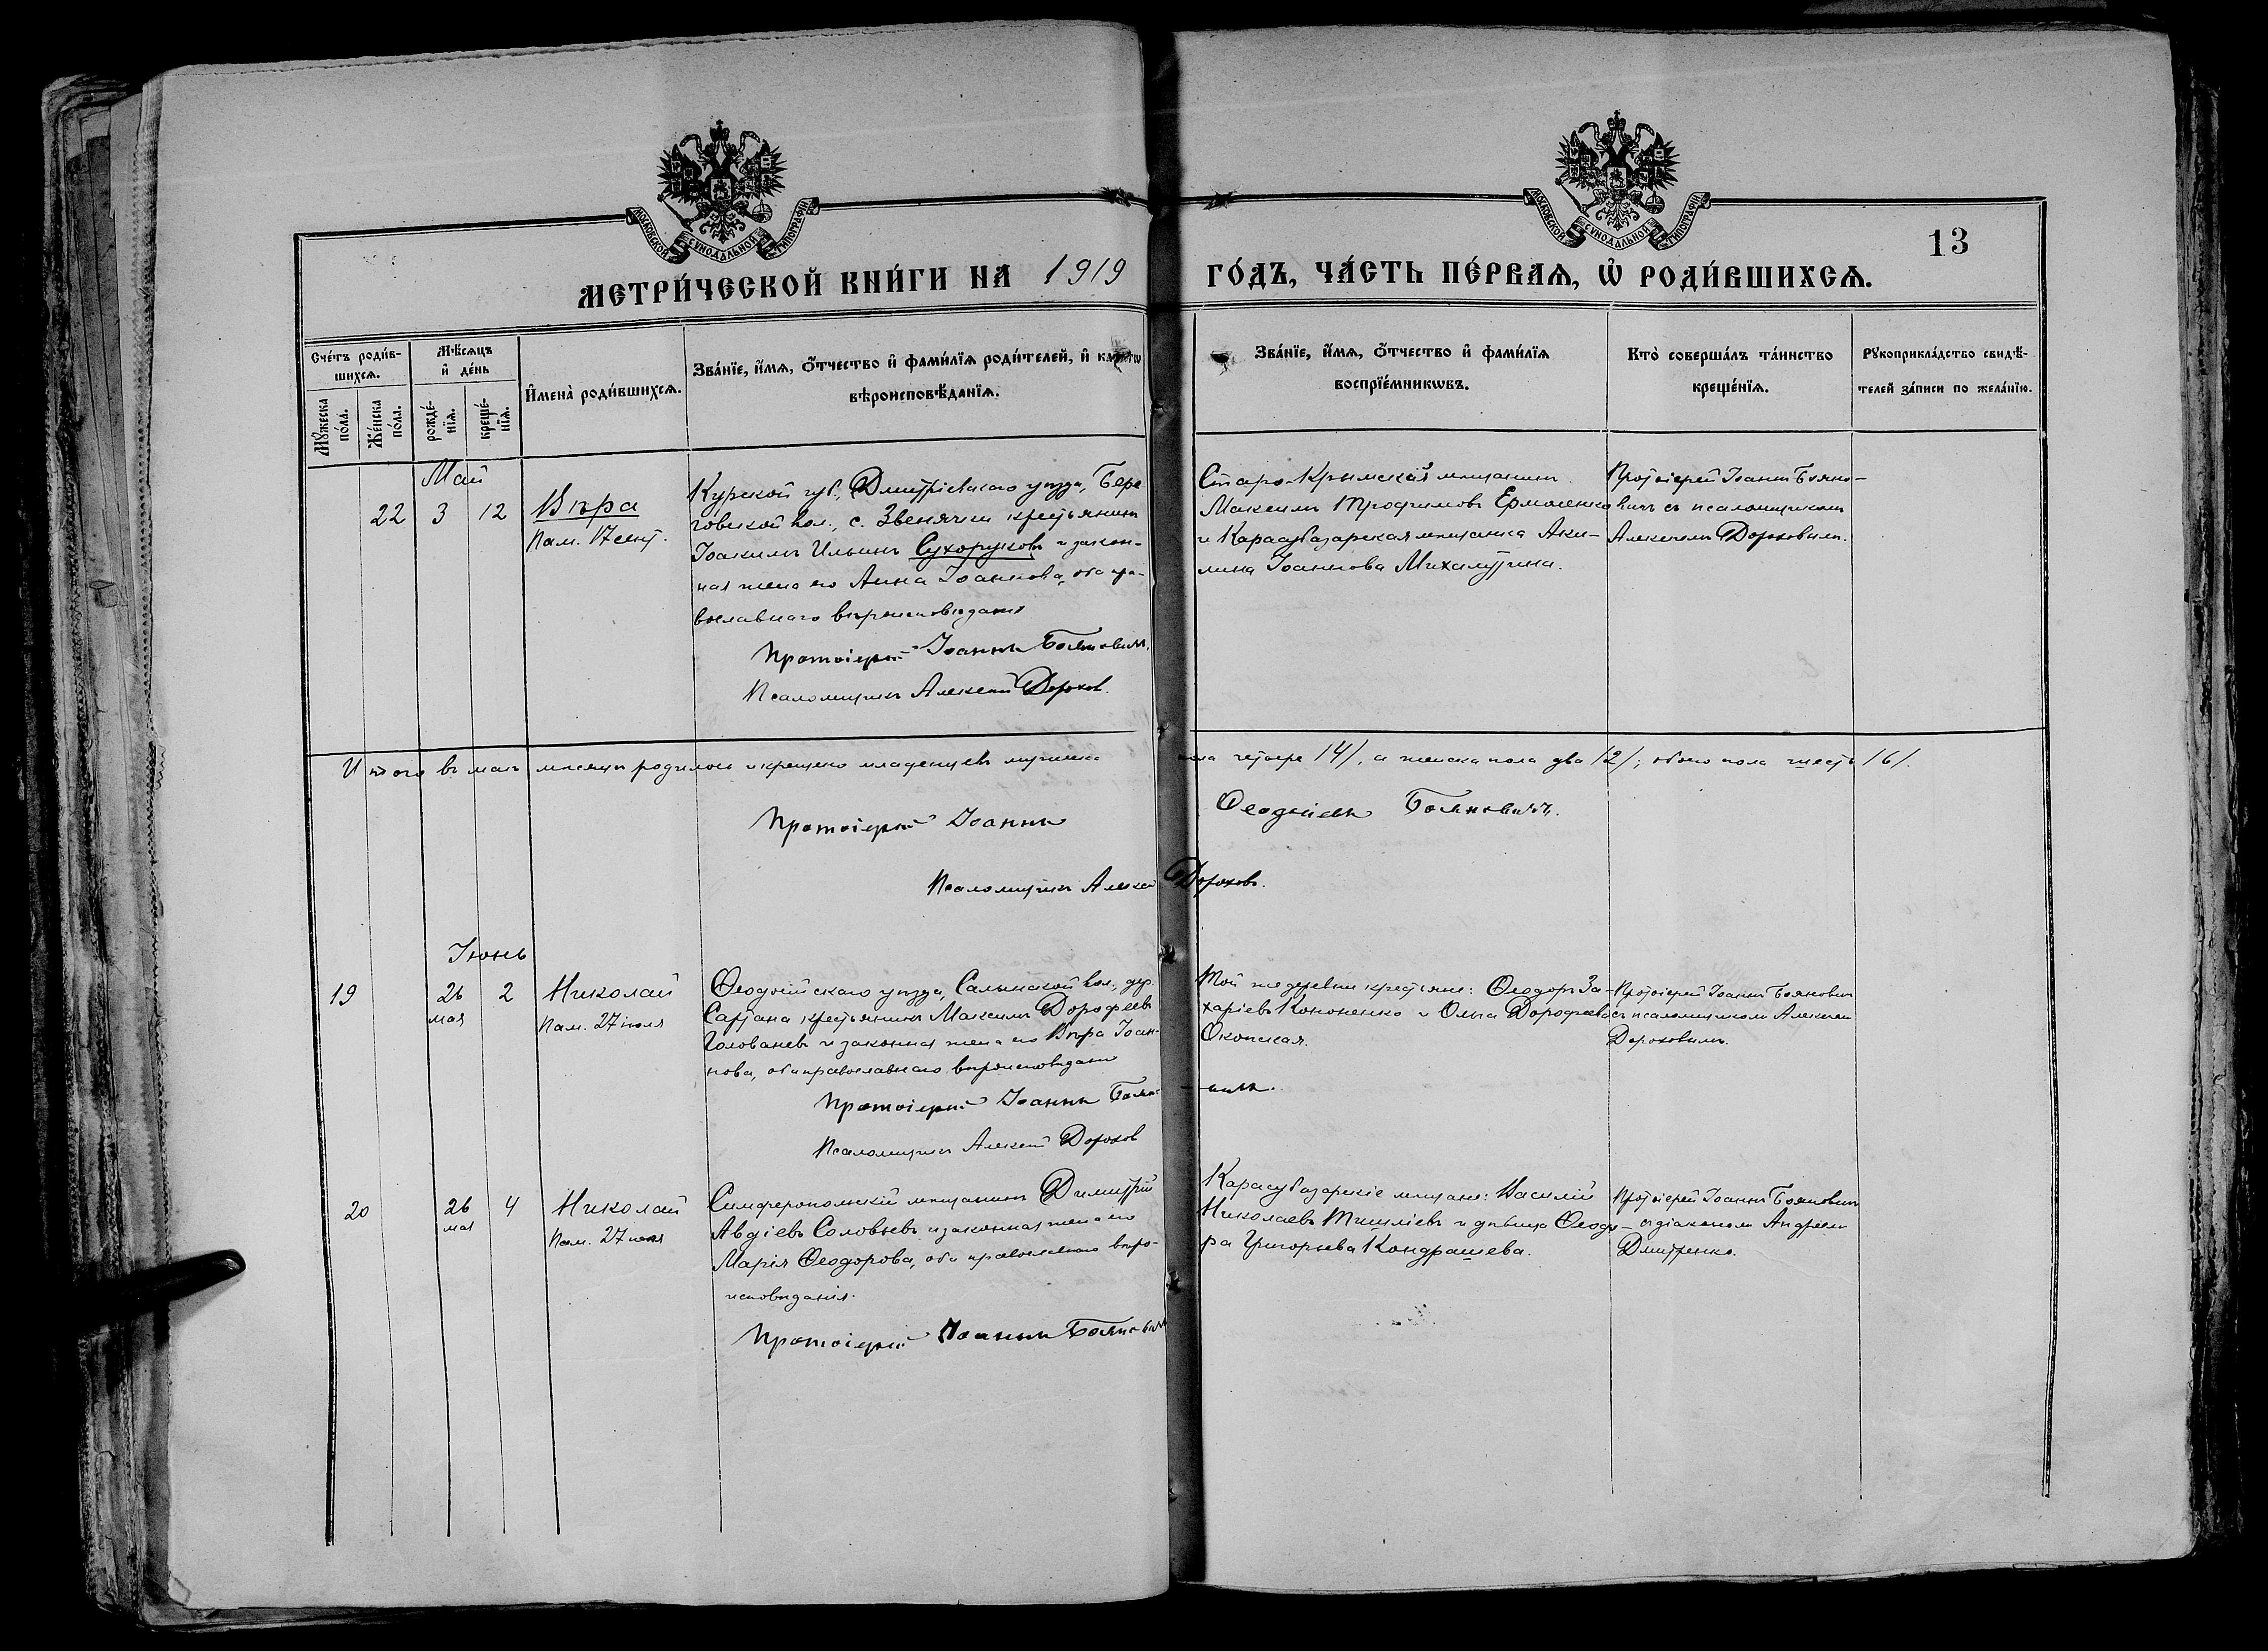 МОСКОВСКОЙ СѴНОДАЛЬНОЙ ТИПОГРАФІИ
МОСКОВСКОЙ СѴНОДАЛЬНОЙ ТИПОГРАФІИ
13
МЕТРИ́ЧЕСКОЙ КНИ́ГИ НА 1919 ГО́ДЪ, ЧА́СТЬ ПЕ́РВАѦ, Ѡ҆ РОДИ́ВШИХСѦ.
Сче́тъ роди́в-
шихсѧ.
Мꙋ́жеска по́ла.
Же́нска по́ла.
Мѣ́сѧцъ и҆ де́нь
рожде́-
нїѧ.
креще́-
нїѧ.
И҆мена̀ роди́вшихсѧ.
Зва́нїе, и҆́мѧ, ѻ҆́тчество и҆ фами́лїѧ роди́телей, и҆
вѣроисповѣ́данїѧ.
Зва́нїе, и҆́мѧ, ѻ҆́тчество и҆ фами́лїѧ
воспрїе́мникѡвъ.
Кто̀ соверша́лъ та́инство
креще́нїѧ.
Рꙋкоприкла́дство свидѣ́-
телей за́писи по жела́нїю.
Май
22 3 12 Вѣра
Пам. 17 сент.
Курской губ., Дмитріевскаго уѣзда, Бере
говской вол., с. Звенячки крестьянинъ
Іоакимъ Ильинъ Сухоруковъ и закон-
ная жена его Анна Іоаннова, оба пра-
вославнаго вѣроисповѣданія
Протоіерей Іоаннъ Бояновичъ.
Псаломщикъ Алексей Дорохов.
Старо-Крымскій мещанинъ
Максимъ Трофимовъ Ермоленко
и Карасубазарская мещанка Аки-
лина Іоаннова Михалутина.
Протоіерей Іоаннъ Бояно-
вичъ съ псаломщикомъ
Алексеемъ Дороховымъ.
Итого въ маѣ мѣсяцѣ родилось и крещено младенцевъ мужеска пола четыре /4/, а женска пола два /2/; обоего пола шесть /6/.
Протоіерей Іоаннъ Ѳеодосіевъ Бояновичъ.
Псаломщикъ Алексей Дороховъ.
Іюнь
19 26 мая 2 Николай
Пам. 27 іюля
Ѳеодосійскаго уѣзда, Салынской вол., дер.
Сартана крестьянинъ Максимъ Дорофеевъ
Голованевъ и законная жена его Вѣра Іоан-
нова, оба православнаго вѣроисповѣданія
Протоіерей Іоаннъ Бояновичъ.
Псаломщикъ Алексей Дорохов
Той же деревни крестьяне: Ѳеодоръ За-
харіевъ Кононенко и Ольга Дорофеева
Окопская.
Протоіерей Іоаннъ Бояновичъ
съ псаломщикомъ Алексеемъ
Дороховымъ.
20 26 мая 4 Николай
Пам. 27 іюля
Симферопольскій мещанинъ Димитрій
Авдіевъ Соловьевъ и законная жена его
Марія Ѳеодорова, оба православнаго вѣро-
исповѣданія.
Протоіерей Іоаннъ Бояновичъ
Карасубазарскіе мещане: Василій
Николаевъ и дѣвица Ѳеодо-
ра Григорьева Кондрашева.
Протоіерей Іоаннъ Бояновичъ
съ діакономъ Андреемъ
Дмитренко.